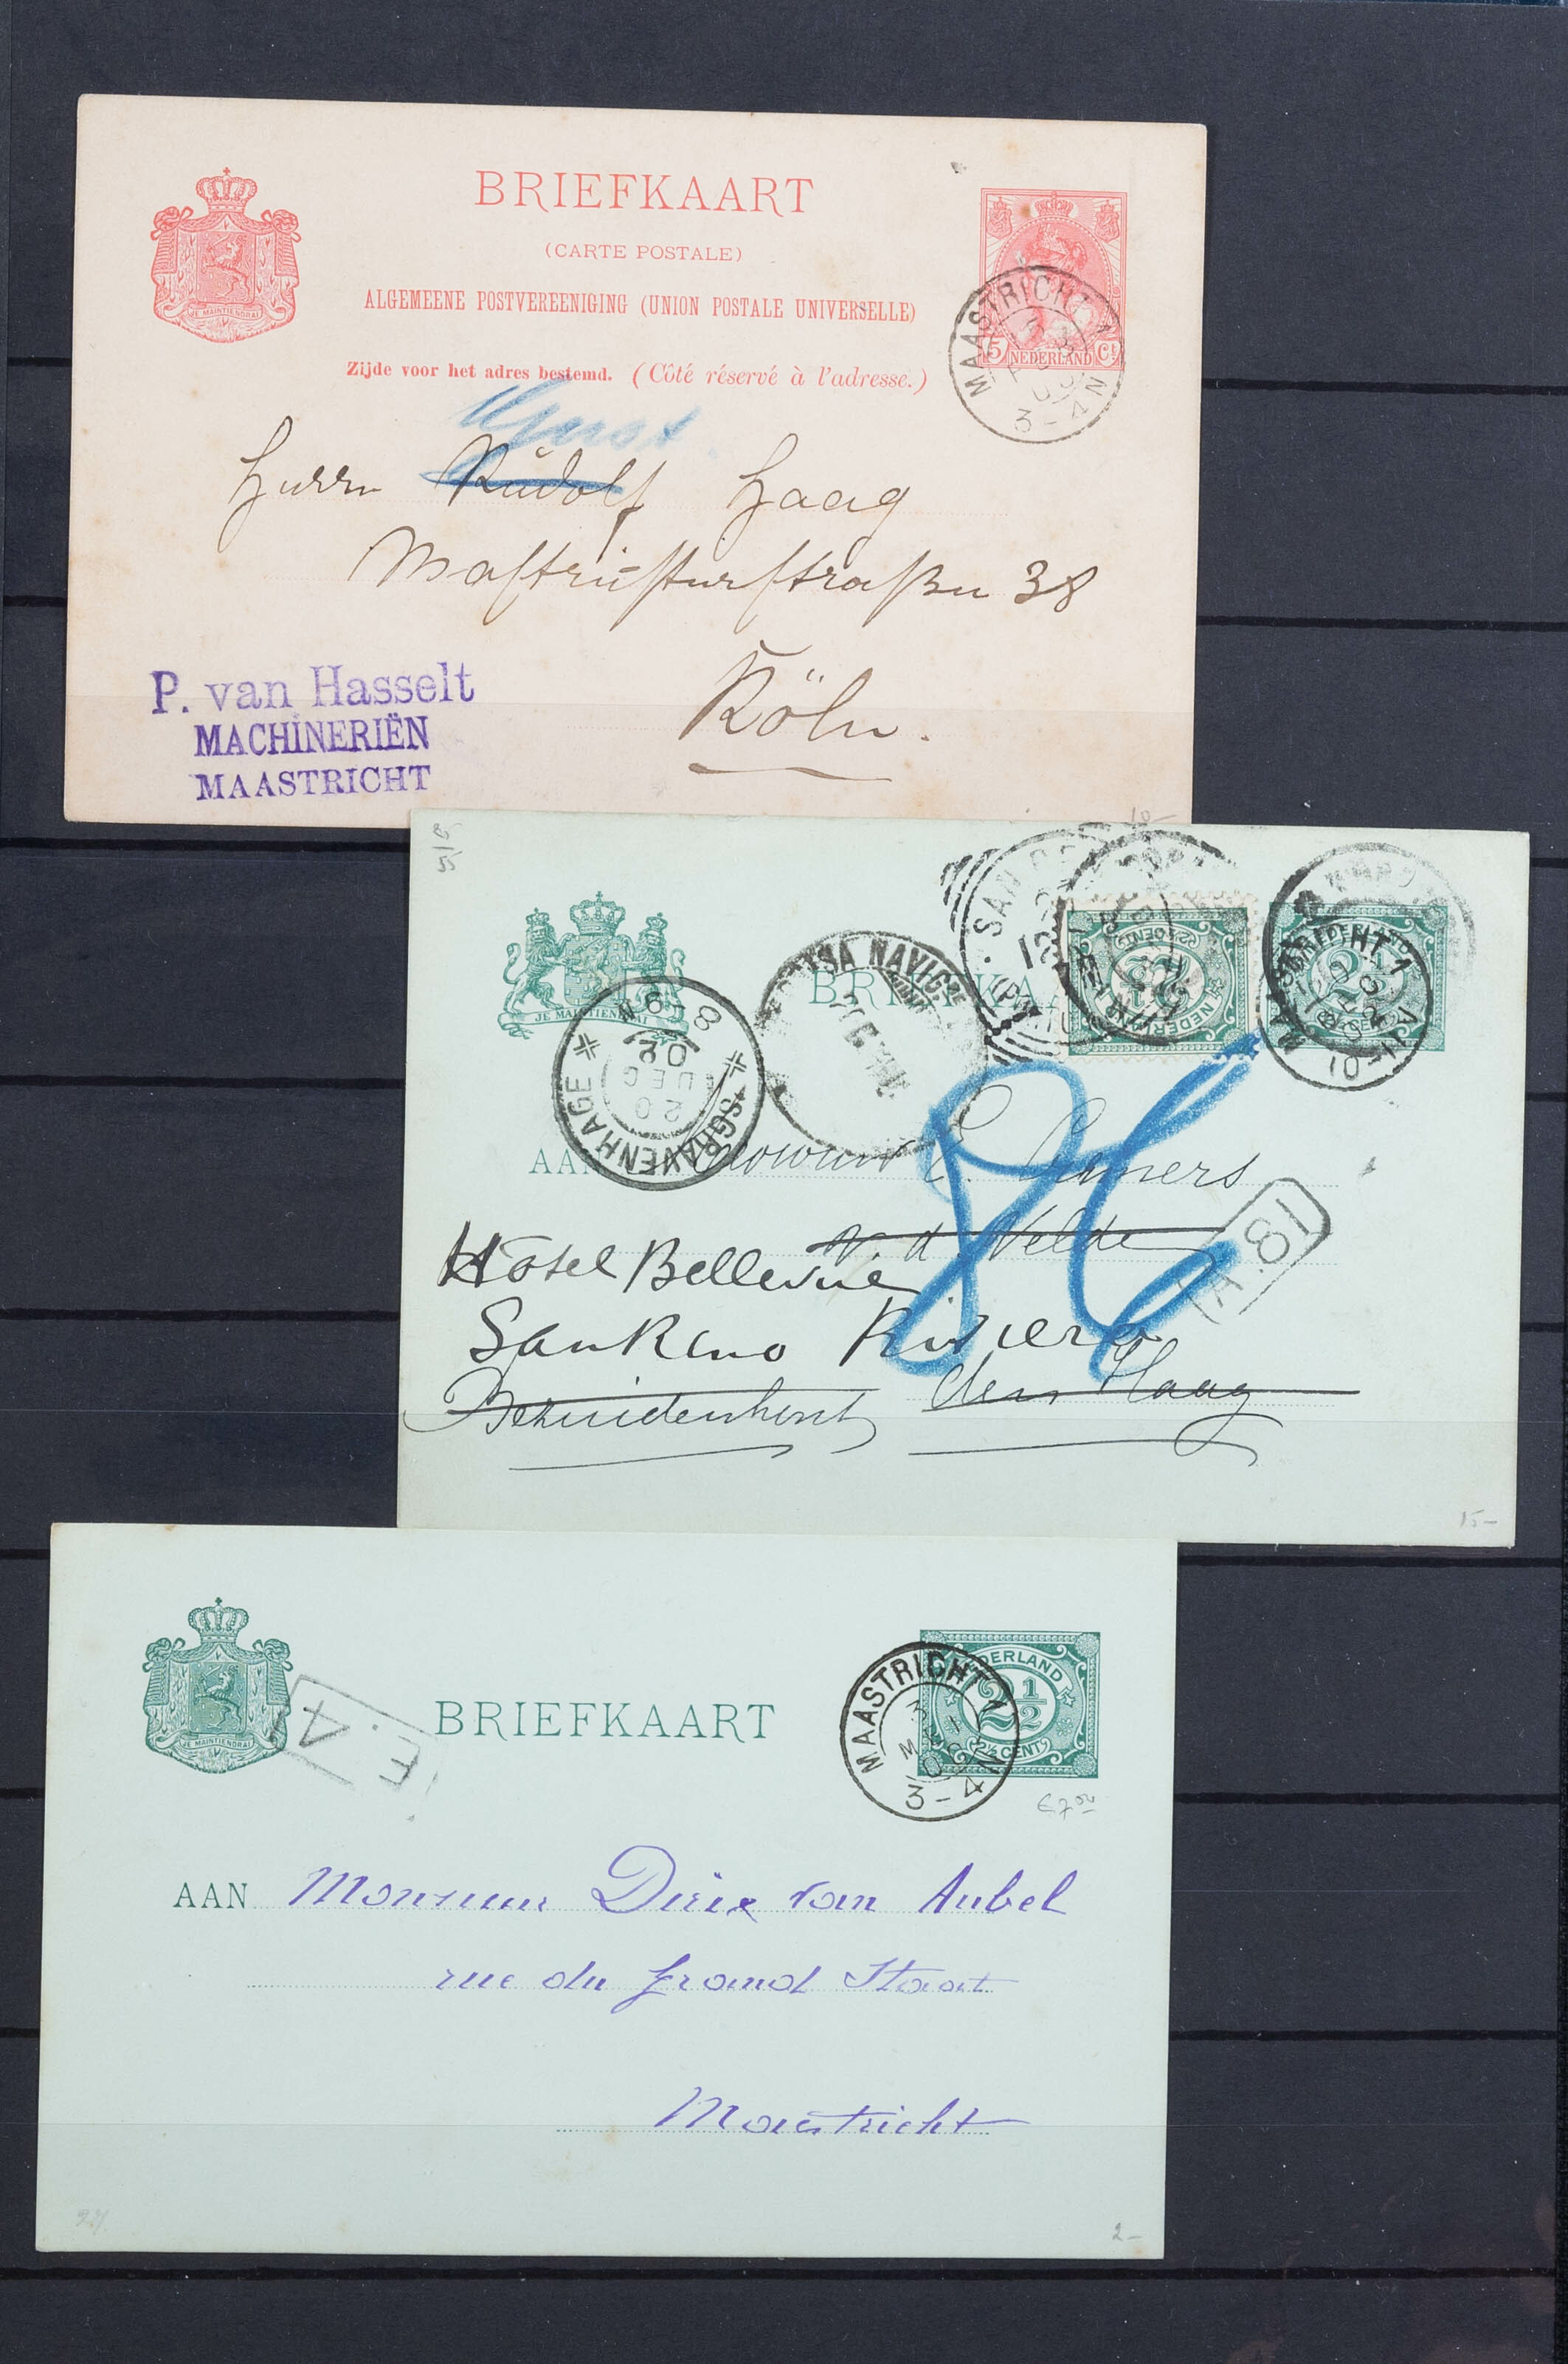 BRIEFKAART
(CARTE POSTALE)
ALGEMEENE POSTVEREENIGING (UNION POSTALE UNIVERSELLE)
Zijde voor het adres bestemd. (Côté réservé à l'adresse.)
JE MAINTIENDRAI
5 NEDERLAND Ct
MAASTRICHT 1
3-4 N
Herrn Rudolf Haag
Mastrichterstraße 38
Köln.
P. van Hasselt
MACHINERIËN
MAASTRICHT
JE MAINTIENDRAI
'SGRAVENHAGE
20
DEC
02
8-9 N
NAVIG
MAASTRICHT 1
AAN
v. d. Velde
Hôtel Bellevue
San Remo Riviera
Bezuidenhout den Haag
A.81
15-
BRIEFKAART
JE MAINTIENDRAI
E.4
NEDERLAND
2½
2½ CENT
MAASTRICHT 1
3-4 N
AAN Monsieur Dirix van Aubel
rue du grand Staat
Maestricht
2-